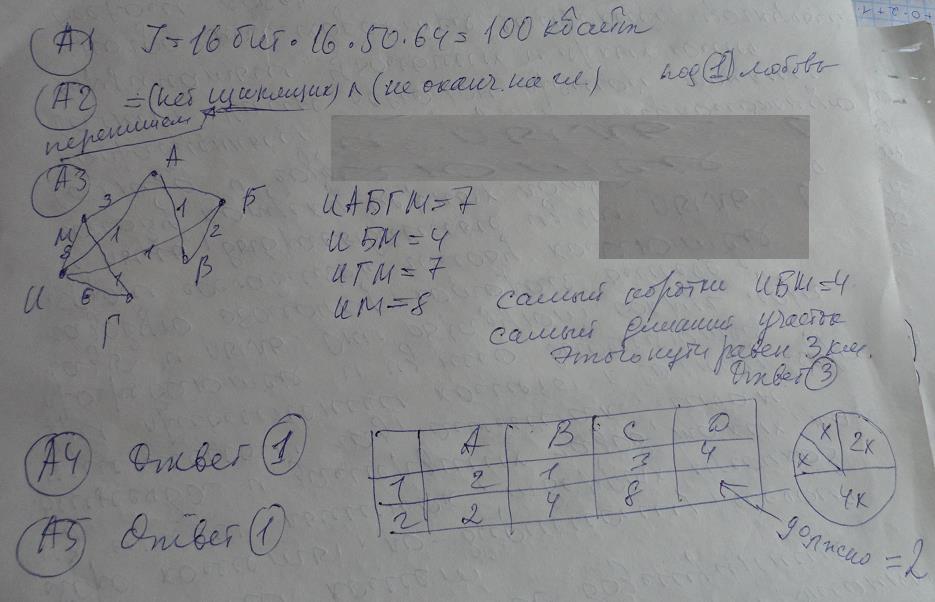 А1 I = 16 бит · 16 · 50 · 64 = 100 кбайт
А2 = (нет шипящих) ∧ (не оканч. на гл.) под 1 Любовь
перепишем
А3
А
Б
3
1
1
2
М
8
1
В
И
6
1
Г
ИАБГМ = 7
ИБМ = 4
ИГМ = 7
ИМ = 8
самый коротки ИБМ = 4
самый длинный участок
этого пути равен 3 км.
Ответ 3
А4 Ответ 1
А5 Ответ 1
A B C D
1 2 1 3 4
2 2 4 8
x 2x
x
4x
должно = 2